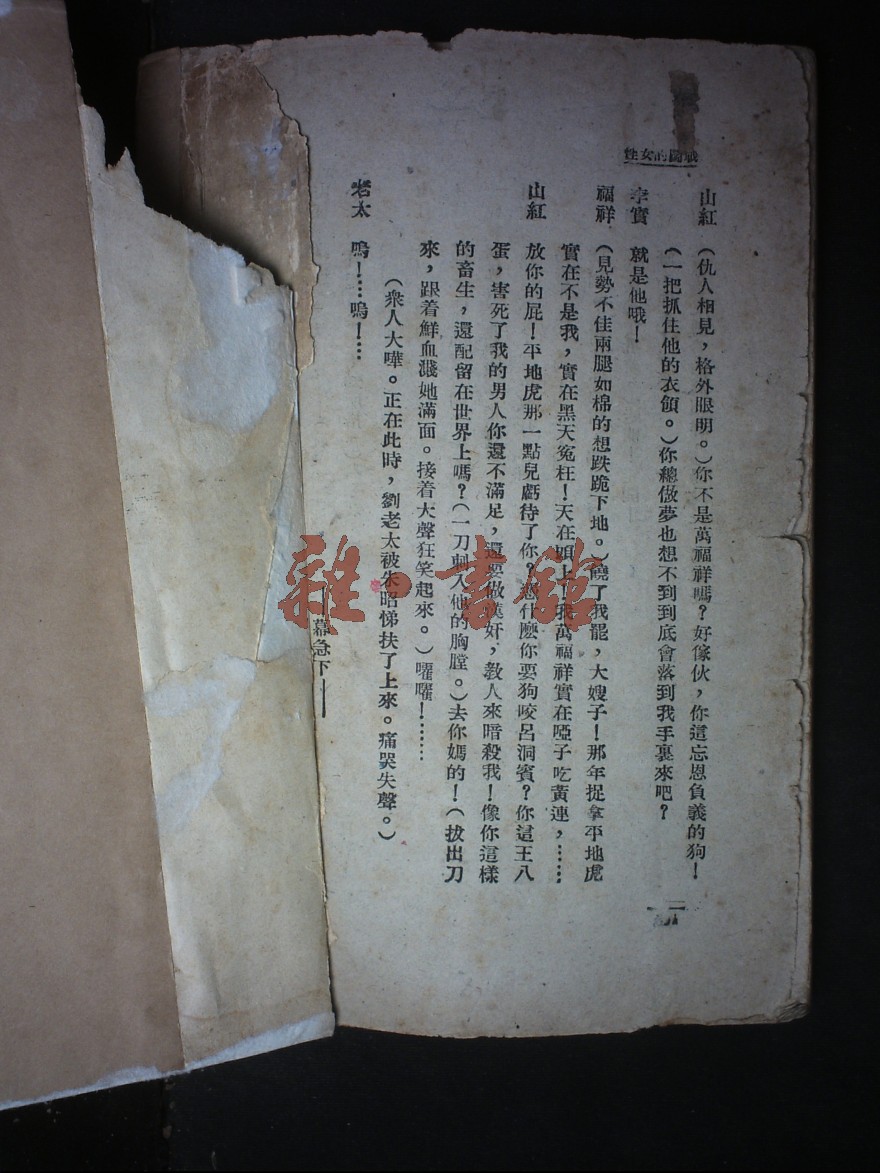 戰鬭的女性
山紅 (仇人相見，格外眼明。)你不是萬福祥嗎？好傢伙，你這忘恩負義的狗！
(一把抓住他的衣領。)你總做夢也想不到到底會落到我手裏來吧？
李實 就是他哦！
福祥 (見勢不佳兩腿如棉的想跌跪下地。)饒了我罷，大嫂子！那年捉拿平地虎
實在不是我，實在黑天冤枉！天在頭上！我萬福祥實在啞子吃黃連，……
山紅 放你的屁！平地虎那一點兒虧待了你？憑什麼你要狗咬呂洞賓？你這王八
蛋，害死了我的男人你還不滿足，還要做漢奸，教人來暗殺我！像你這樣
的畜生，還配留在世界上嗎？(一刀刺入他的胸膛。)去你媽的！(拔出刀
來，跟着鮮血濺她滿面。接着大聲狂笑起來。)嚯嚯！……
(衆人大嘩。正在此時，劉老太被朱昭悌扶了上來。痛哭失聲。)
老太 嗚！……嗚！……
幕急下——
雜·書館